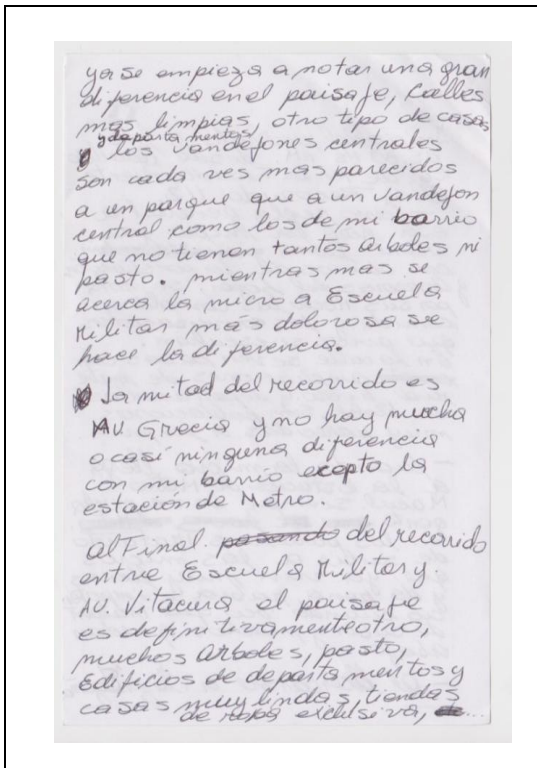 ya se empieza a notar una gran
diferencia en el paisaje, calles
mas limpias, otro tipo de casas
y departamentos,
los vandejones centrales
son cada ves mas parecidos
a un parque que a un vandejon
central como los de mi barrio
que no tienen tantos arboles ni
pasto. mientras mas se
acerca la micro a Escuela
Militar más dolorosa se
hace la diferencia.
La mitad del recorrido es
AV. Grecia y no hay mucha
o casi ninguna diferencia
con mi barrio exepto la
estación de Metro.
Al Final. pasando del recorrido
entre Escuela Militar y.
AV. Vitacura el paisaje
es definitivamente otro,
muchos arboles, pasto,
Edificios de departamentos y
casas muy lindas, tiendas
de ropa exclusiva, de...